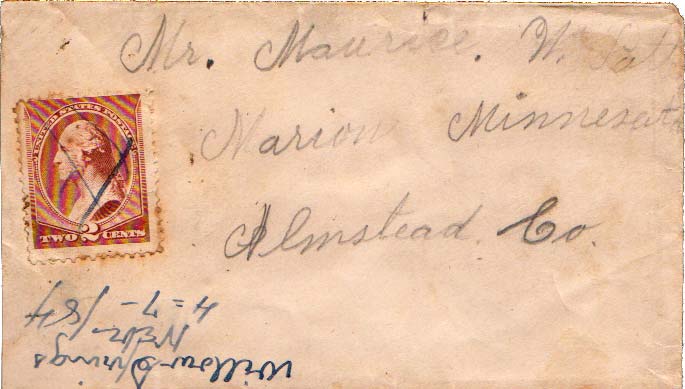 Mr. Maurice. W.
Marion Minnesota
Olmstead. Co.
UNITED STATES POSTAGE
TWO 2 CENTS
Willow Springs
Nebr
4=7-/84